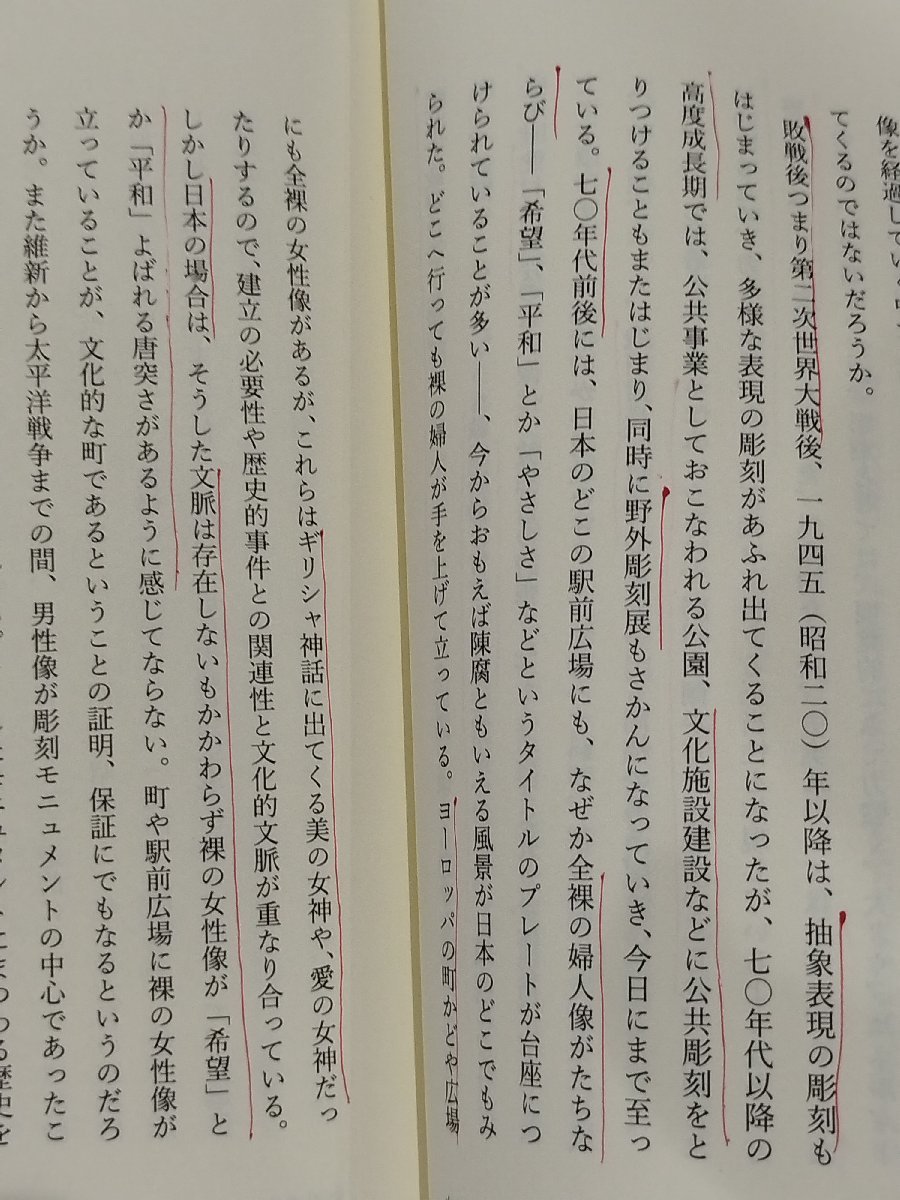 像を経過してい
てくるのではないだろうか。
敗戦後つまり第二次世界大戦後、一九四五（昭和二〇）年以降は、抽象表現の彫刻も
はじまっていき、多様な表現の彫刻があふれ出てくることになったが、七〇年代以降の
高度成長期では、公共事業としておこなわれる公園、文化施設建設などに公共彫刻をと
りつけることもまたはじまり、同時に野外彫刻展もさかんになっていき、今日にまで至っ
ている。七〇年代前後には、日本のどこの駅前広場にも、なぜか全裸の婦人像がたちな
らび――「希望」、「平和」とか「やさしさ」などというタイトルのプレートが台座につ
けられていることが多い――、今からおもえば陳腐ともいえる風景が日本のどこでもみ
られた。どこへ行っても裸の婦人が手を上げて立っている。ヨーロッパの町かどや広場
にも全裸の女性像があるが、これらはギリシャ神話に出てくる美の女神や、愛の女神だっ
たりするので、建立の必要性や歴史的事件との関連性と文化的文脈が重なり合っている。
しかし日本の場合は、そうした文脈は存在しないもかかわらず裸の女性像が「希望」と
か「平和」よばれる唐突さがあるように感じてならない。町や駅前広場に裸の女性像が
立っていることが、文化的な町であるということの証明、保証にでもなるというのだろ
うか。また維新から太平洋戦争までの間、男性像が彫刻モニュメントの中心であったこ
まつわる歴史を